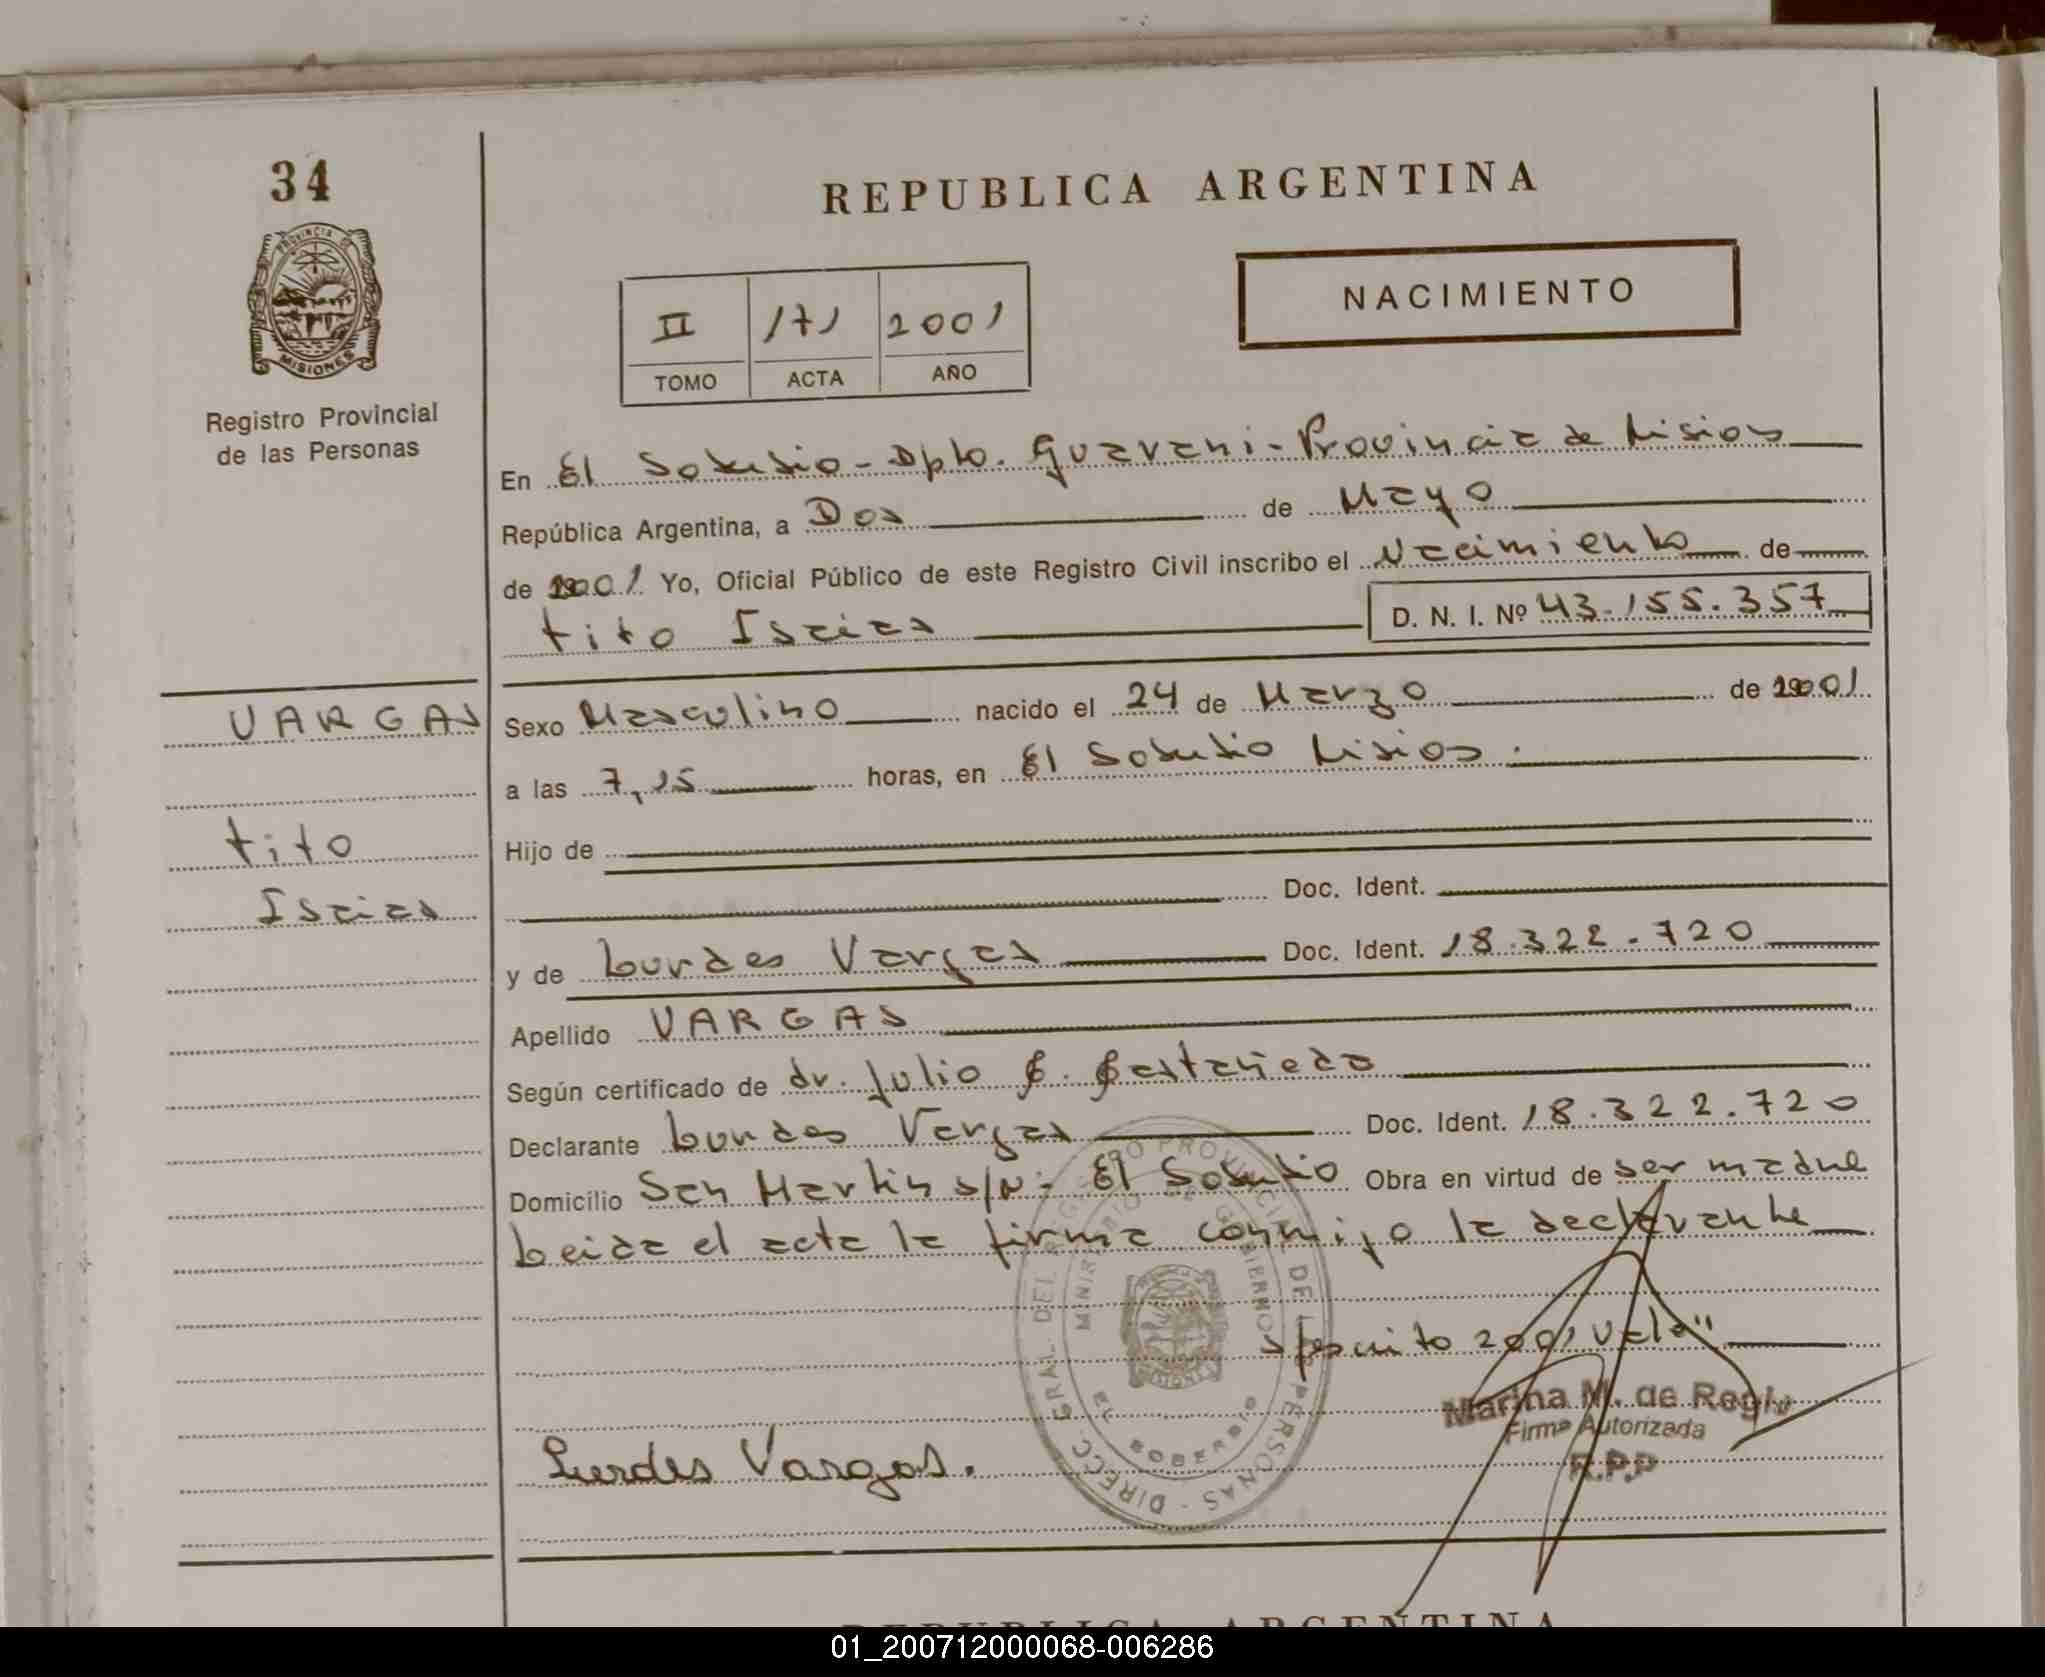 34
REPUBLICA ARGENTINA
PROVINCIA DE
MISIONES
NACIMIENTO
II 171 2001
TOMO ACTA AÑO
Registro Provincial
de las Personas
En El Soberbio - Dpto. Guarani - Provincia de Misiones
República Argentina, a Dos de Mayo
de 2001 Yo, Oficial Público de este Registro Civil inscribo el Nacimiento de
tito Isaias D. N. I. Nº 43.155.357
VARGAS
Sexo Masculino nacido el 24 de Marzo de 2001
a las 7,15 horas, en El Soberbio Misiones.
tito
Hijo de
Isaias
Doc. Ident.
y de Lourdes Vargas Doc. Ident. 18.322.720
Apellido VARGAS
Según certificado de dr. Julio C. Castañeda
Declarante Lourdes Vargas Doc. Ident. 18.322.720
Domicilio San Martin s/n - El Soberbio Obra en virtud de ser madre
Leida el acta la firma conmigo la declarante
s/escrito 2001 vale"
Marina M. de Regis
Firma Autorizada
R.P.P
Lurdes Vargas.
DIRECC. GRAL. DEL REGISTRO PROVINCIAL DE LAS PERSONAS
MINISTERIO DE GOBIERNO
EL SOBERBIO
MISIONES
REPUBLICA ARGENTINA
01_200712000068-006286